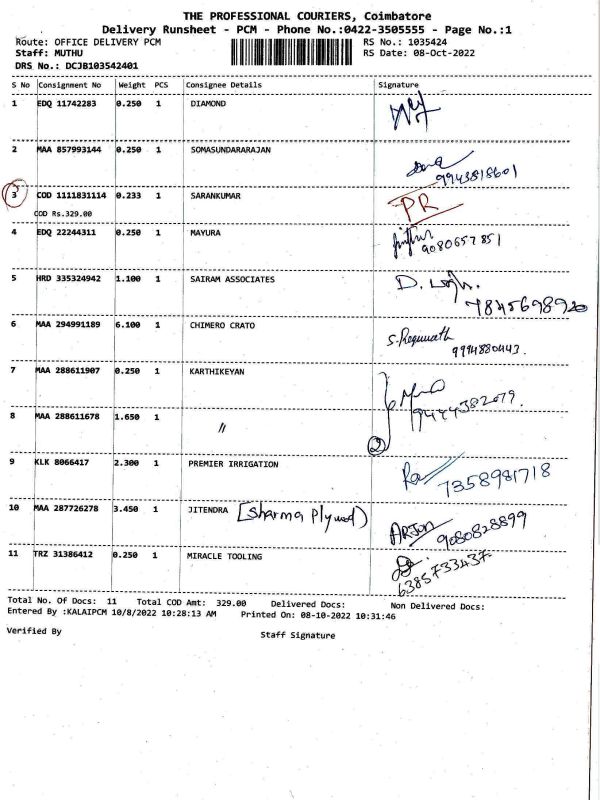 THE PROFESSIONAL COURIERS, Coimbatore
Delivery Runsheet - PCM - Phone No.:0422-3505555 - Page No.:1
Route: OFFICE DELIVERY PCM RS No.: 1035424
Staff: MUTHU RS Date: 08-Oct-2022
DRS No.: DCJB103542401
S No Consignment No Weight PCS Consignee Details Signature
1 EDQ 11742283 0.250 1 DIAMOND
2 MAA 857993144 0.250 1 SOMASUNDARARAJAN
9943818601
3 COD 1111831114 0.233 1 SARANKUMAR PR
COD Rs.329.00
4 EDQ 22244311 0.250 1 MAYURA
9080657851
5 HRD 335324942 1.100 1 SAIRAM ASSOCIATES D.
7845698920
6 MAA 294991189 6.100 1 CHIMERO CRATO S.Regunath
9994880443.
7 MAA 288611907 0.250 1 KARTHIKEYAN
9444382079.
8 MAA 288611678 1.650 1 〃 2
9 KLK 8066417 2.300 1 PREMIER IRRIGATION
7358981718
10 MAA 287726278 3.450 1 JITENDRA [Sharma Plywood) ARJON
9080828899
11 TRZ 31386412 0.250 1 MIRACLE TOOLING
6385733437
Total No. Of Docs: 11 Total COD Amt: 329.00 Delivered Docs: Non Delivered Docs:
Entered By :KALAIPCM 10/8/2022 10:28:13 AM Printed On: 08-10-2022 10:31:46
Verified By Staff Signature